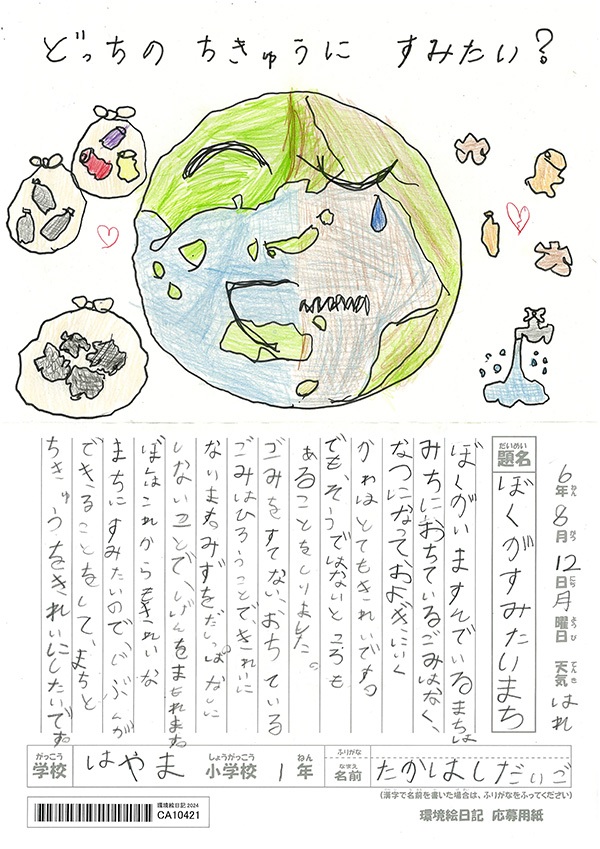 どっちの ちきゅうに すみたい？
6年8月12日月曜日 天気はれ
ねん がつ にち ようび てんき
だいめい
題名 ぼくがすみたいまち
ぼくがいますんでいるまちは
みちにおちているごみはなく、
なつになっておよぎにいく
かわはとてもきれいです。
でも、そうではないところも
あることをしりました。
ごみをすてない、おちている
ごみはひろうことで、きれいに
なります。みずをだしっぱなしに
しないことで、しげんをまもれます。
ぼくはこれからもきれいな
まちにすみたいので、じぶんが
できることをして、まちと
ちきゅうをきれいにしたいです。
がっこう しょうがっこう ねん ふりがな
学校 はやま 小学校 1年 名前 たかはしだいご
なまえ
(漢字で名前を書いた場合は、ふりがなをふってください)
環境絵日記 2024
CA10421
環境絵日記 応募用紙